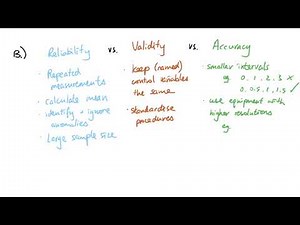 B.) Reliability vs. Validity vs. Accuracy
• Repeated
measurements
• Calculate mean
• identify + ignore
anomalies
• Large sample size
• keep (named)
control variables
the same
• standardise
procedures
• smaller intervals
eg 0, 1, 2, 3 ×
0, 0.5, 1, 1.5 ✓
• use equipment with
higher resolutions
eg